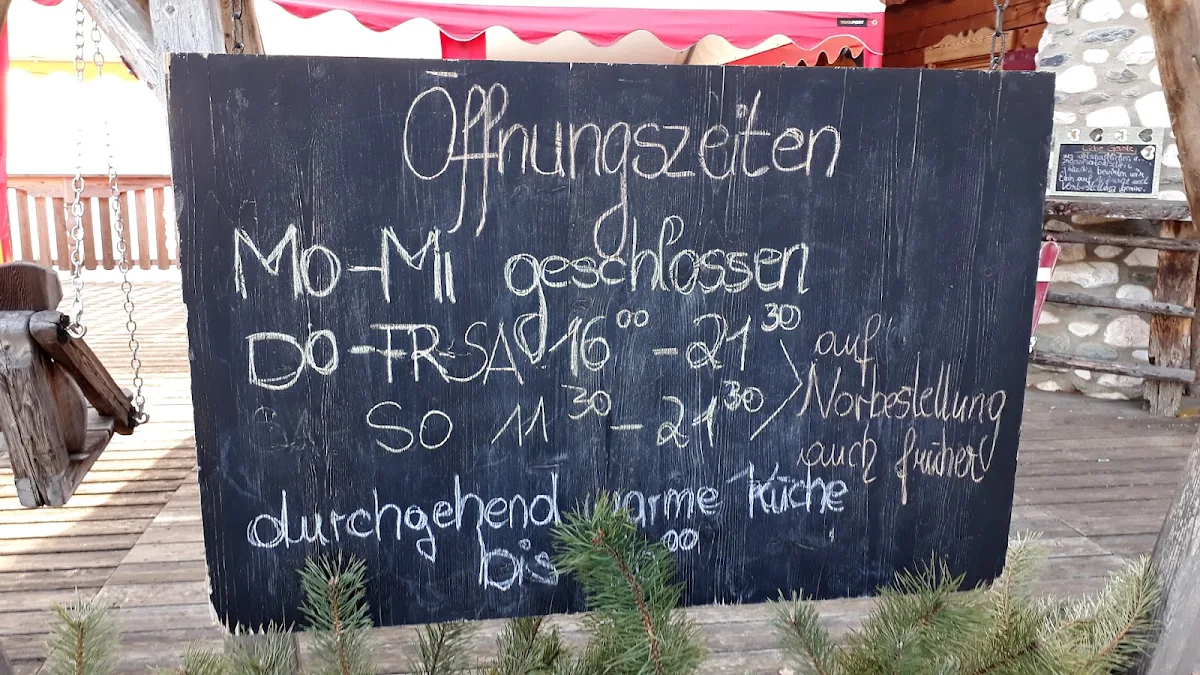 Öffnungszeiten
MO-MI geschlossen
DO-FR-SA 16⁰⁰ - 21³⁰
SO 11³⁰ - 21³⁰
auf
Vorbestellung
auch früher
durchgehend warme Küche
bis 00
Liebe Gäste